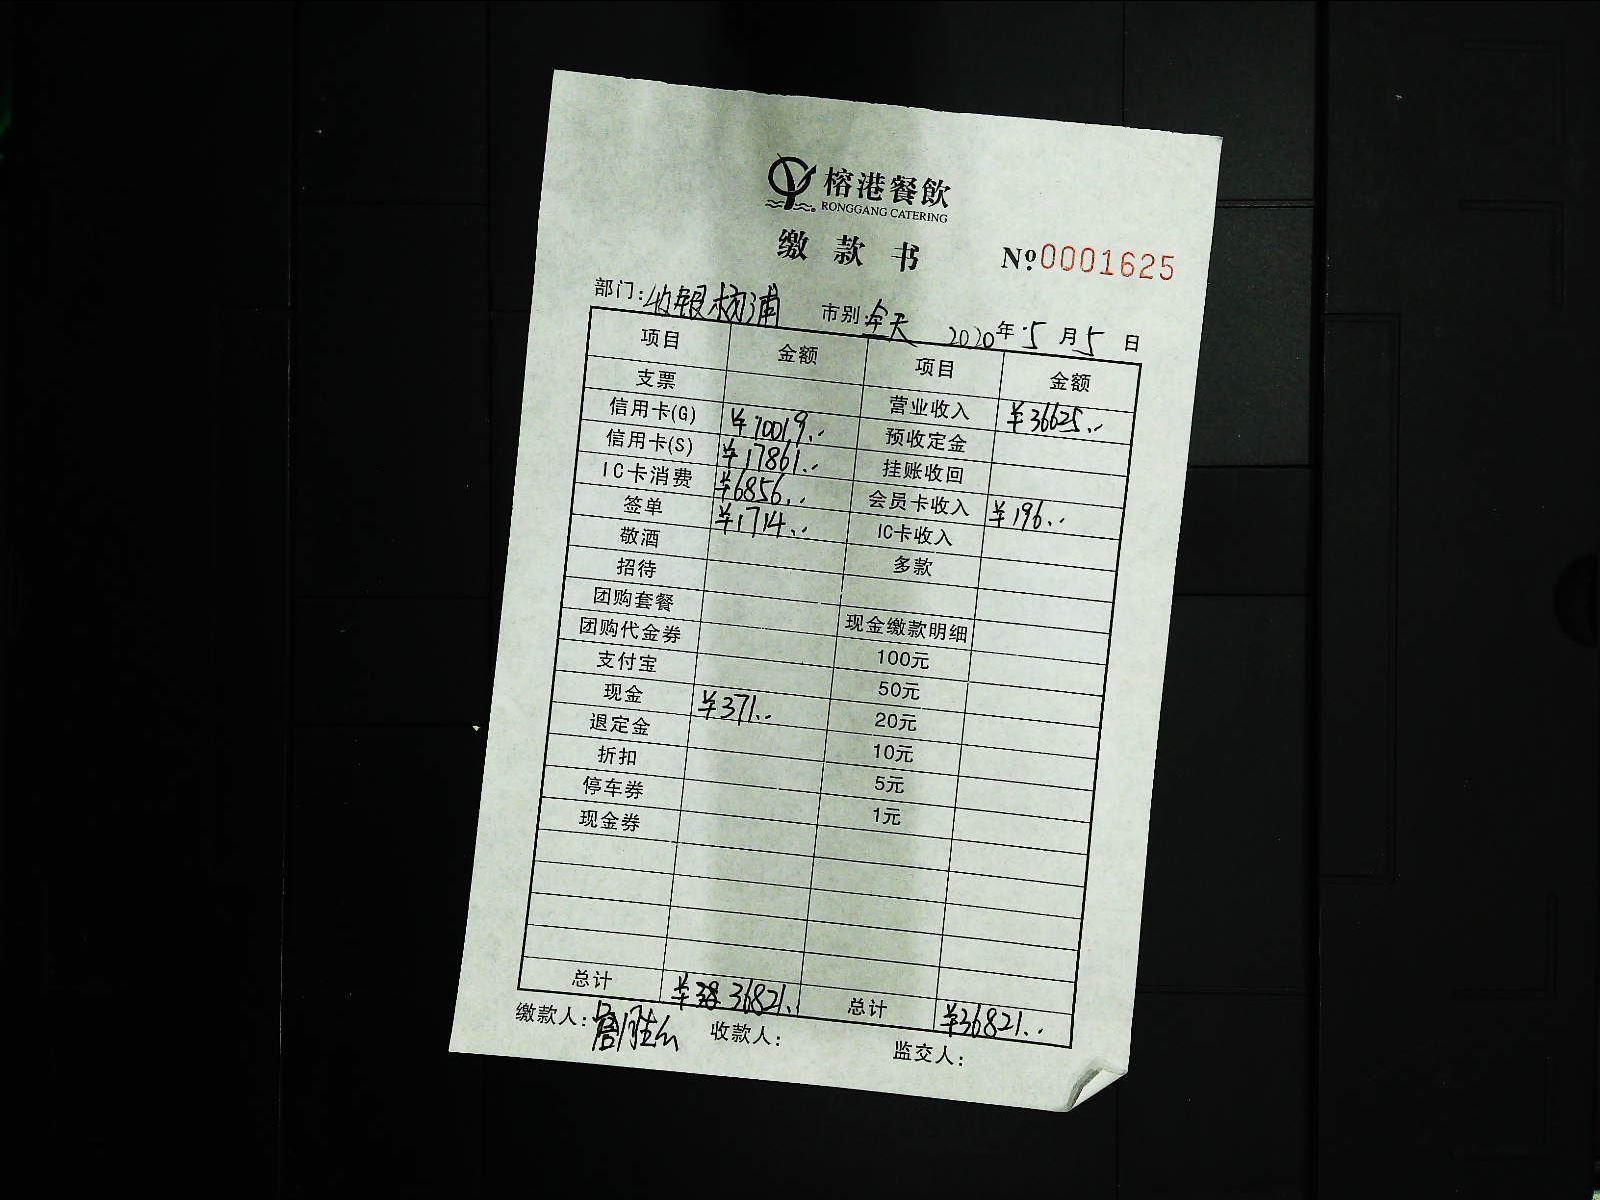 榕港餐飲
RONGGANG CATERING
缴款书 №0001625
部门:收银杨浦 市别:全天 2020年5月5日
项目 金额 项目 金额
支票 营业收入 ¥36625..
信用卡(G) ¥10019.. 预收定金
信用卡(S) ¥17861.. 挂账收回
IC卡消费 ¥6856.. 会员卡收入 ¥196..
签单 ¥1714.. IC卡收入
敬酒 多款
招待
团购套餐 现金缴款明细
团购代金券 100元
支付宝 50元
现金 ¥371.. 20元
退定金 10元
折扣 5元
停车券 1元
现金券
总计 ¥36821.. 总计 ¥36821..
缴款人: 收款人: 监交人: